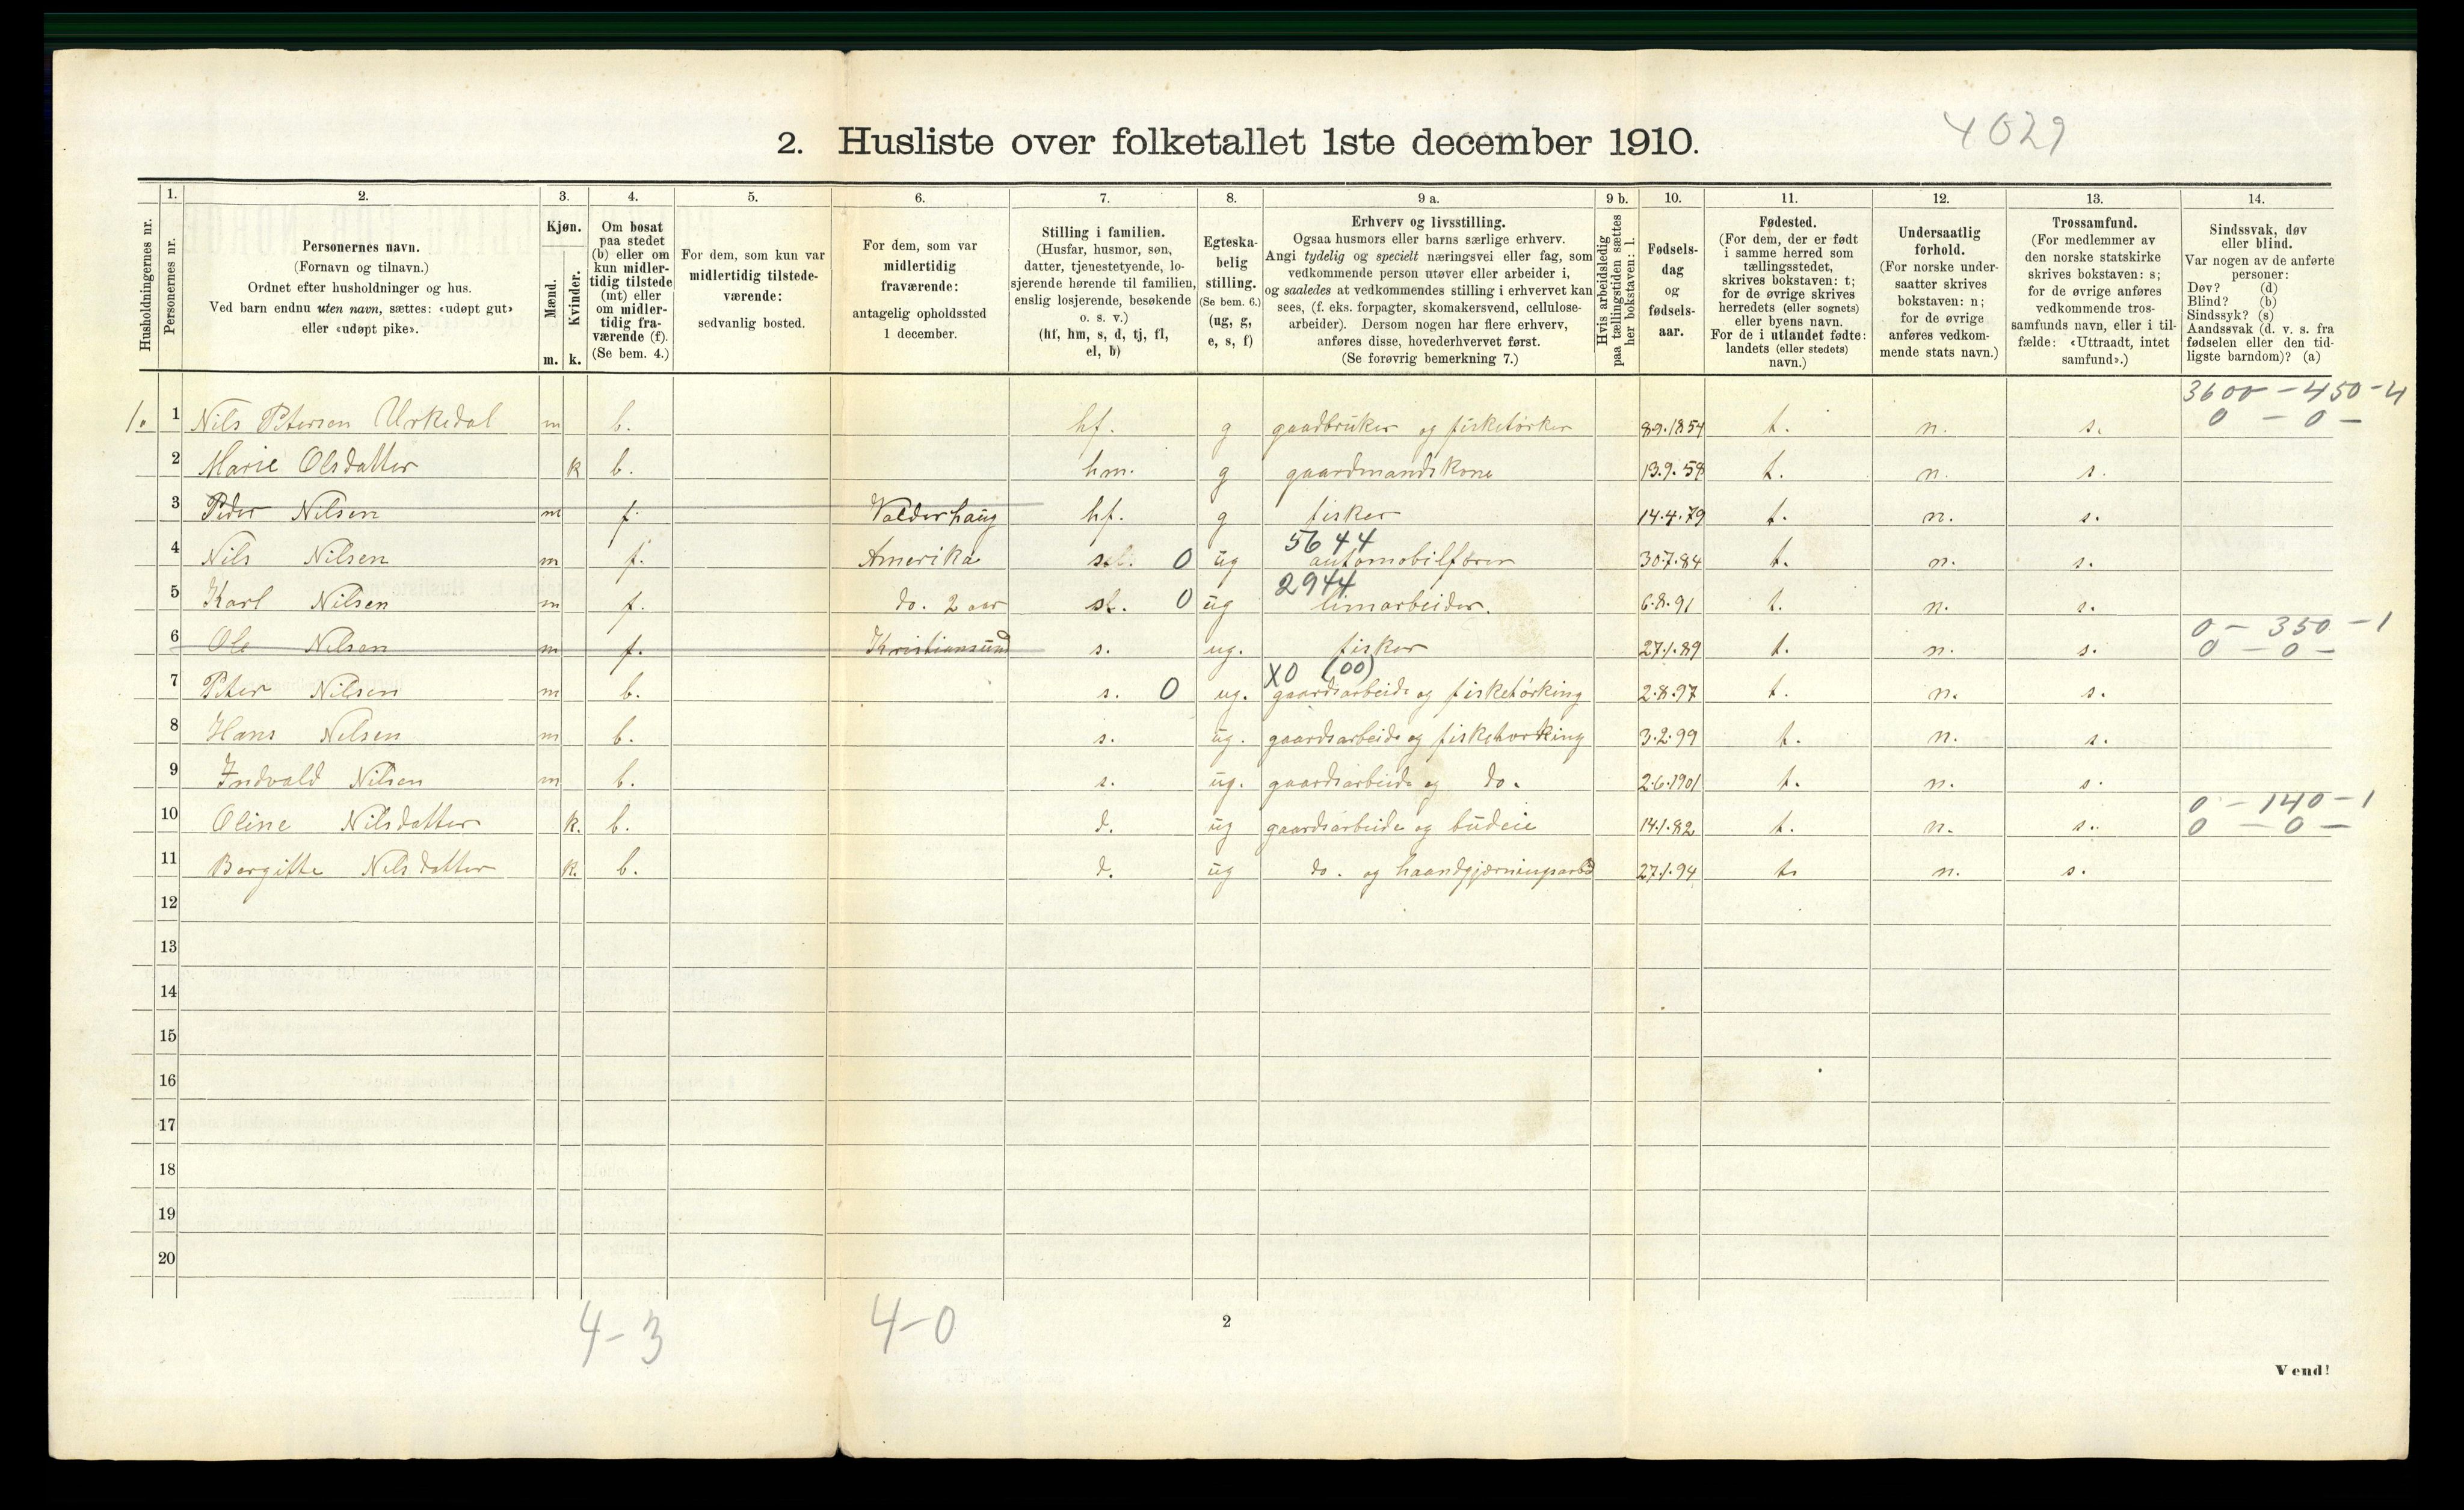 2. Husliste over folketallet 1ste december 1910.
4029
1. 2. 3. 4. 5. 6. 7. 8. 9 a. 9 b. 10. 11. 12. 13. 14.
Husholdningernes nr.
Personernes nr.
Personernes navn.
(Fornavn og tilnavn.)
Ordnet efter husholdninger og hus.
Ved barn endnu uten navn, sættes: «udøpt gut»
eller «udøpt pike».
Kjøn.
Mænd.
Kvinder.
m. k.
Om bosat
paa stedet
(b) eller om
kun midler-
tidig tilstede
(mt) eller
om midler-
tidig fra-
værende (f).
(Se bem. 4.)
For dem, som kun var
midlertidig tilstede-
værende:
sedvanlig bosted.
For dem, som var
midlertidig
fraværende:
antagelig opholdssted
1 december.
Stilling i familien.
(Husfar, husmor, søn,
datter, tjenestetyende, lo-
sjerende hørende til familien,
enslig losjerende, besøkende
o. s. v.)
(hf, hm, s, d, tj, fl,
el, b)
Egteska-
belig
stilling.
(Se bem. 6.)
(ug, g,
e, s, f)
Erhverv og livsstilling.
Ogsaa husmors eller barns særlige erhverv.
Angi tydelig og specielt næringsvei eller fag, som
vedkommende person utøver eller arbeider i,
og saaledes at vedkommendes stilling i erhvervet kan
sees, (f. eks. forpagter, skomakersvend, cellulose-
arbeider). Dersom nogen har flere erhverv,
anføres disse, hovederhvervet først.
(Se forøvrig bemerkning 7.)
Hvis arbeidsledig
paa tællingstiden sættes
her bokstaven: l.
Fødsels-
dag
og
fødsels-
aar.
Fødested.
(For dem, der er født
i samme herred som
tællingsstedet,
skrives bokstaven: t;
for de øvrige skrives
herredets (eller sognets)
eller byens navn.
For de i utlandet fødte:
landets (eller stedets)
navn.)
Undersaatlig
forhold.
(For norske under-
saatter skrives
bokstaven: n;
for de øvrige
anføres vedkom-
mende stats navn.)
Trossamfund.
(For medlemmer av
den norske statskirke
skrives bokstaven: s;
for de øvrige anføres
vedkommende tros-
samfunds navn, eller i til-
fælde: «Uttraadt, intet
samfund».)
Sindssvak, døv
eller blind.
Var nogen av de anførte
personer:
Døv? (d)
Blind? (b)
Sindssyk? (s)
Aandssvak (d. v. s. fra
fødselen eller den tid-
ligste barndom)? (a)
3600 - 450 - 4
1. 1 Nils Petersen Urkedal m b. hf. g gaardbruker og fisketørker 8.9.1854 t. n. s. 0 - 0 -
2 Marie Olsdatter k b. hm. g gaardmandskone 13.9.58 t. n. s.
3 Peder Nilsen m f. Valderhaug hf. g fisker 14.4.79 t. n. s.
5644
4 Nils Nilsen m f. Amerika s. 0 ug automobilfører 30.7.84 t. n. s.
2944
5 Karl Nilsen m f. do. 2 aar s. 0 ug limarbeider. 6.8.91 t. n. s.
0 - 350 - 1
6 Ole Nilsen m f. Kristiansund s. ug. fisker 27.1.89 t. n. s. 0 - 0 -
X0 (00)
7 Peter Nilsen m b. s. 0 ug. gaardsarbeide og fisketørking 2.8.97 t. n. s.
8 Hans Nilsen m b. s. ug. gaardsarbeide og fisketørking 3.2.99 t. n. s.
9 Indvald Nilsen m b. s. ug. gaardsarbeide og do. 2.6.1901 t. n. s.
0 - 140 - 1
10 Oline Nilsdatter k. b. d. ug gaardsarbeide og budeie 14.1.82 t. n. s. 0 - 0 -
11 Bergitte Nilsdatter k. b. d. ug do. og haandgjærningsarbd 27.1.94 t. n. s.
12
13
14
15
16
17
18
19
20
4-3 4-0
2
Vend!